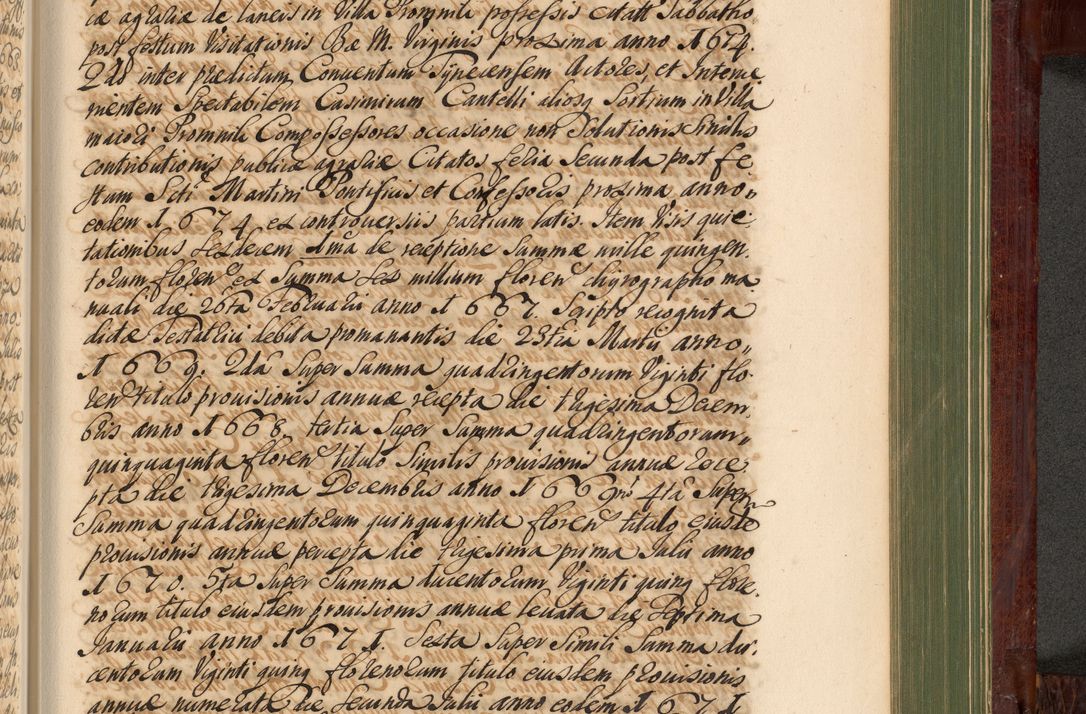 cæ agrariæ de laneis in Villa Promnik possessis citatt Sabbatho
post festum Visitationis Bæ M. Virginis proxima anno 1674.
2do inter prædictum Conventum Tynecensem Actores, et Interve
nientem Spectabilem Casimirum Cantelli aliosq Sortium in Villa
maiori Promnik Compossessores occasione non Solutionis Similis
contributionis publicæ agrariæ Citatos feria Secunda post fe
stum Scti Martini Pontificis et Confessoris proxima anno„
eodem 1674 ex controversiis partium latis. Item Visis quie
tationibus sexdecem 1ma de receptione Summæ mille quingen
torum floren ex Summa sex millium floren chyrographo ma
nuali die 26ta Februarii anno 1667. Scripto recognita
dictæ Testatrici debita promanantis die 23tia Martii anno„
1669. 2da Super Summa quadringentorum Viginti flo
ren titulo provisionis annuæ recepta die trigesima Decem
bris anno 1668 tertia Super Summa quadringentorum„
quinquaginta floren titulo Similis provisionis annuæ rece
pta die trigesima Decembris anno 1669ni 4ta Super
Summa quadringentorum quinquaginta floren titulo eiusde
provisionis annuæ percepta die trigesima prima Julii anno
1670. 5ta Super Summa ducentorum Viginti quinq flore
norum titulo eiusdem provisionis annuæ levata die Septima
Januarii anno 1671. Sexta Super Simili Summa du
centorum Viginti quinq florenorum titulo eiusdem provisionis
annuæ numerata die Secunda Julii anno eodem 1671